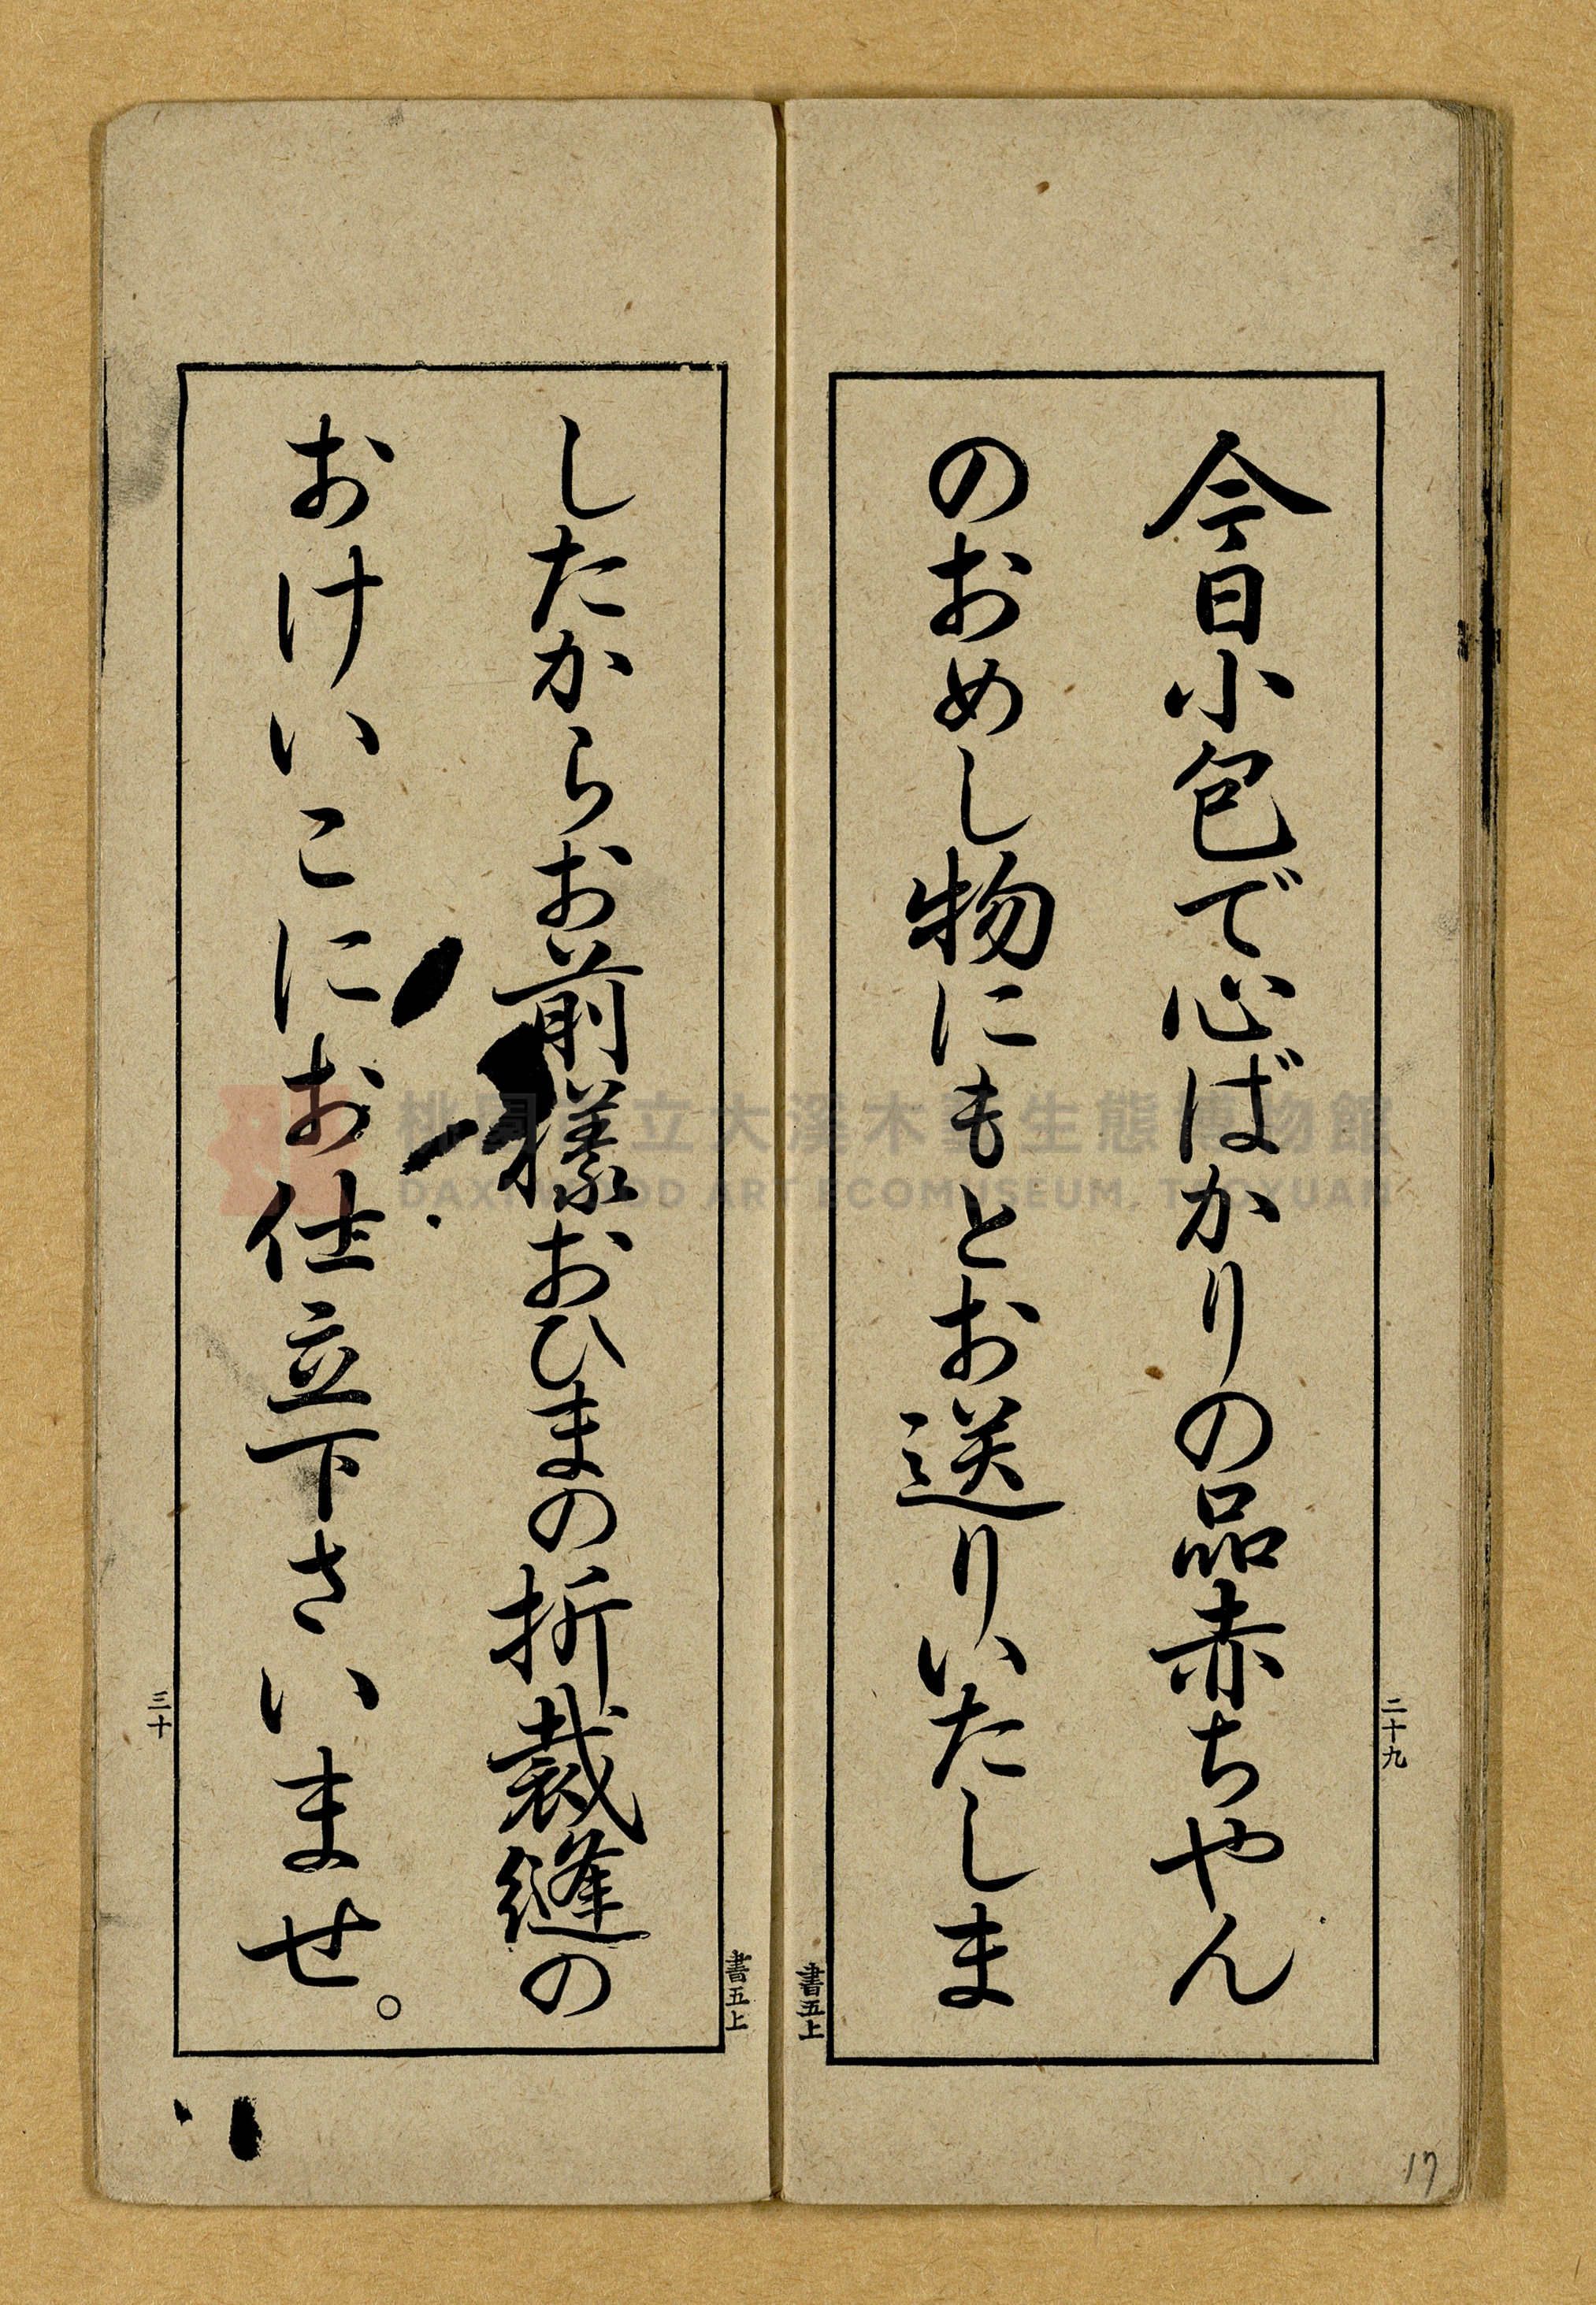 今日小包で心ばかりの品赤ちやん
のおめし物にもとお送りいたしま
二十九
書五上
したからお前樣おひまの折裁縫の
おけいこにお仕立下さいませ。
書五上
三十
17
桃園市立大溪木藝生態博物館
DAXI WOOD ART ECOMUSEUM, TAOYUAN